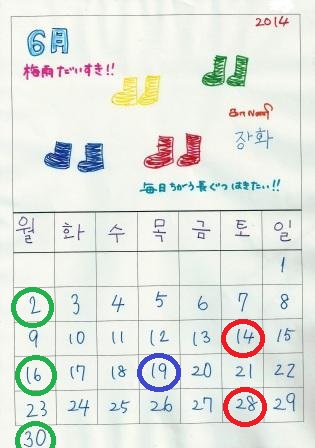 2014
6月
梅雨だいすき!!
장화
毎日ちがう長ぐつはきたい!!
월 화 수 목 금 토 일
1
2 3 4 5 6 7 8
9 10 11 12 13 14 15
16 17 18 19 20 21 22
23 24 25 26 27 28 29
30